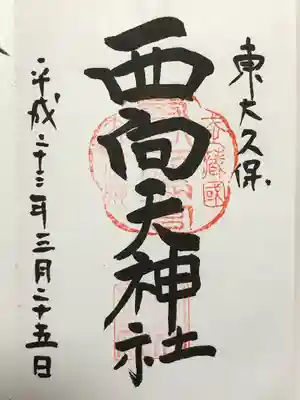 東大久保
西向天神社
平成二十三年三月二十五日